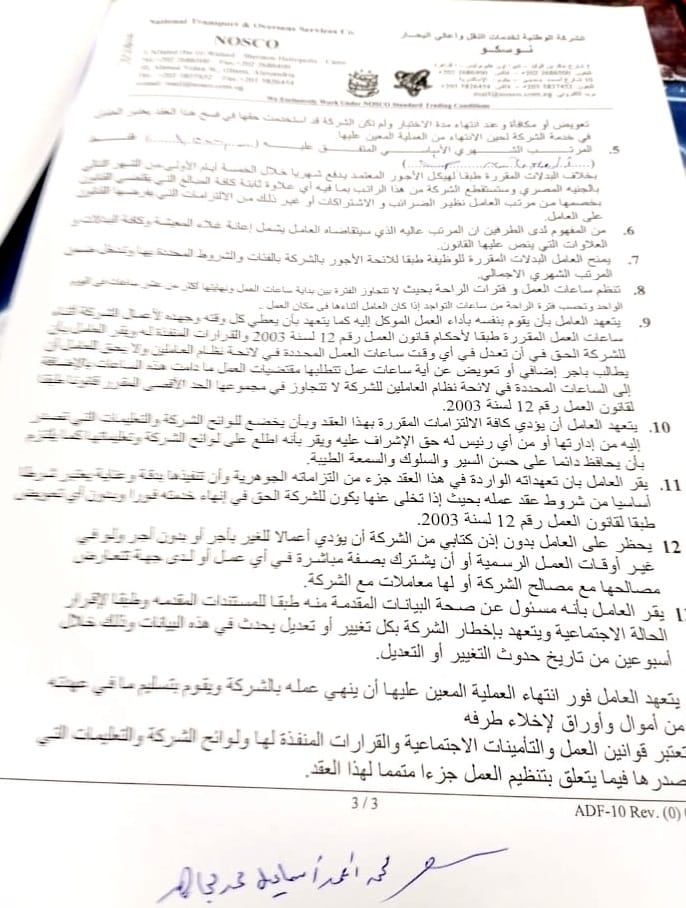 National Transport & Overseas Services Co
NOSCO
الشركة الوطنية لخدمات النقل وأعالي البحار
نوسكو
We Exclusively Work Under NOSCO Standard Trading Conditions
تعويض أو مكافأة وعند انتهاء مدة الاختبار ولم تكن الشركة قد استخدمت حقها في فسخ هذا العقد يعتبر
في خدمة الشركة لحين الانتهاء من العملية المعين عليها.
5. المرتب الشهري الأساسي المتفق عليه (............) فقط
(............)
بخلاف البدلات المقررة طبقا لهيكل الأجور المعتمد يدفع شهريا خلال الخمسة أيام الأولى من الشهر التالي
بالجنيه المصري وستستقطع الشركة من هذا الراتب بما فيه أي علاوة ثابتة كافة المبالغ التي يقتضي القانون
بخصمها من مرتب العامل نظير الضرائب و الاشتراكات أو غير ذلك من الالتزامات التي يفرضها القانون
على العامل.
6. من المفهوم لدى الطرفين ان المرتب عاليه الذي سيتقاضاه العامل يشمل إعانة غلاء المعيشة وكافة البدلات و
العلاوات التي ينص عليها القانون.
7. يمنح العامل البدلات المقررة للوظيفة طبقا للائحة الأجور بالشركة بالفئات والشروط المحددة بها وتدخل ضمن
المرتب الشهري الاجمالي.
8. تنظم ساعات العمل و فترات الراحة بحيث لا تتجاوز الفترة بين بداية ساعات العمل ونهايتها أكثر من عشر ساعات في اليوم
الواحد وتحسب فترة الراحة من ساعات التواجد إذا كان العامل أثناءها في مكان العمل.
9. يتعهد العامل بأن يقوم بنفسه بأداء العمل الموكل إليه كما يتعهد بأن يعطي كل وقته وجهده لأعمال الشركة أثناء
ساعات العمل المقررة طبقا لأحكام قانون العمل رقم 12 لسنة 2003 والقرارات المنفذة له ويقر العامل بأن
للشركة الحق في أن تعدل في أي وقت ساعات العمل المحددة في لائحة نظام العاملين ولا يحق للعامل أن
يطالب باجر إضافي أو تعويض عن أية ساعات عمل تتطلبها مقتضيات العمل ما دامت هذه الساعات بالإضافة
إلى الساعات المحددة في لائحة نظام العاملين للشركة لا تتجاوز في مجموعها الحد الأقصى المقرر قانونا طبقا
لقانون العمل رقم 12 لسنة 2003.
10. يتعهد العامل أن يؤدي كافة الالتزامات المقررة بهذا العقد وبأن يخضع للوائح الشركة والتعليمات التي تصدر
إليه من إدارتها أو من أي رئيس له حق الإشراف عليه ويقر بأنه اطلع على لوائح الشركة وتعليماتها كما يلتزم
بأن يحافظ دائما على حسن السير والسلوك والسمعة الطيبة.
11. يقر العامل بان تعهداته الواردة في هذا العقد جزء من التزاماته الجوهرية وأن تنفيذها بدقة وعناية يعتبر شرطا
أساسيا من شروط عقد عمله بحيث إذا تخلى عنها يكون للشركة الحق في إنهاء خدمته فورا وبدون أي تعويض
طبقا لقانون العمل رقم 12 لسنة 2003.
12 يحظر على العامل بدون إذن كتابي من الشركة أن يؤدي أعمالا للغير بأجر أو بدون أجر ولو في
غير أوقات العمل الرسمية أو أن يشترك بصفة مباشرة في أي عمل أو لدى جهة تتعارض
مصالحها مع مصالح الشركة أو لها معاملات مع الشركة.
يقر العامل بأنه مسئول عن صحة البيانات المقدمة منه طبقا للمستندات المقدمه وطبقا لإقرار
الحالة الاجتماعية ويتعهد بإخطار الشركة بكل تغيير أو تعديل يحدث في هذه البيانات وذلك خلال
أسبوعين من تاريخ حدوث التغيير أو التعديل.
يتعهد العامل فور انتهاء العملية المعين عليها أن ينهي عمله بالشركة ويقوم بتسليم ما في عهدته
من أموال وأوراق لإخلاء طرفه
تعتبر قوانين العمل والتأمينات الاجتماعية والقرارات المنفذة لها ولوائح الشركة والتعليمات التي
صدرها فيما يتعلق بتنظيم العمل جزءا متمما لهذا العقد.
3 / 3
ADF-10 Rev. (0)
محمد أحمد إسماعيل محمد